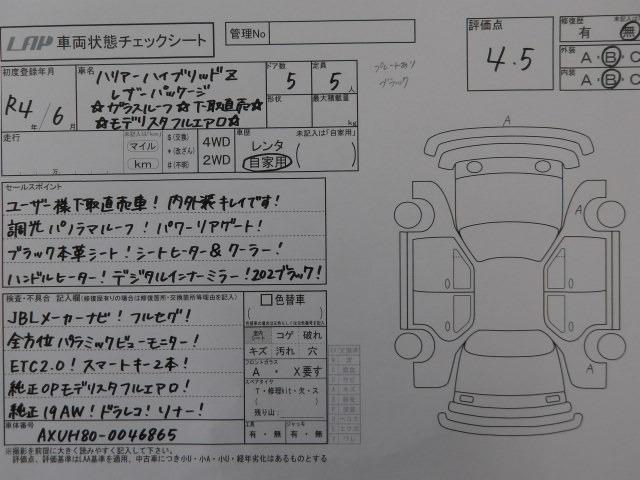 LAP 車両状態チェックシート
管理No
評価点
4.5
修復歴
有 無
外装
A・B・C
内装
A・B・C
初度登録年月
R4年 6月
車名
ハリアーハイブリッドZ
レザーパッケージ
☆ガラスルーフ☆下取直売☆
☆モデリスタフルエアロ☆
ドア数
5
定員
5人
形状
最大積載量
kg
プレートあり
ブラック
走行
未記入は「km」
マイル
km
万
$(交換)
*(改ざん)
#(不明)
4WD
2WD
車歴
未記入は「自家用」
レンタ
自家用
( )
セールスポイント
ユーザー様下取直売車!内外装キレイです!
調光パノラマルーフ!パワーリアゲート!
ブラック本革シート!シートヒーター&クーラー!
ハンドルヒーター!デジタルインナーミラー!202ブラック!
検査・不具合 記入欄(修復歴有りの場合は修復箇所・交換箇所等理由を記入)
JBLメーカーナビ!フルセグ!
全方位パラミックビューモニター!
ETC2.0!スマートキー2本!
純正OPモデリスタフルエアロ!
純正19AW!ドラレコ!ソナー!
色替車
( )
コゲ 破れ
キズ 汚れ 穴
フロントガラス
A ・ X要す
スペアタイヤ
T・修理kit・欠・ス
( )
残り山:
工具
有・無
ジャッキ
有・無
車体番号
AXUH80-0046865
A
A
A
※撮影を前提に大きく読みやすく記入して下さい。
評価点、評価基準はLAA基準を適用、中古車につき小U・小A・小U・経年劣化はあるものとする